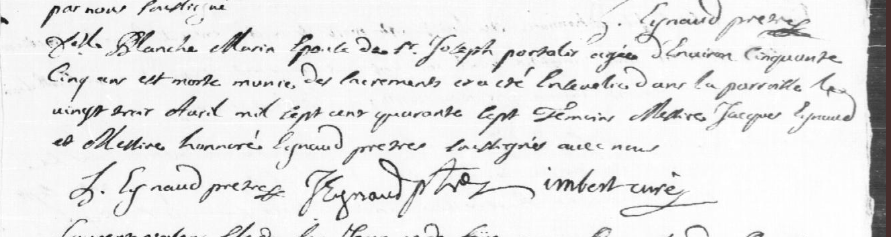 par nous soussigné
h. Eynaud pretre
Delle Blanche Marin Epouse de Sr. Joseph portalis agée d'Environ Cinquante
Cinq ans est morte munie des sacrements et a eté Ensevelie dans la parroisse le
vingt trois Avril mil sept cent quarante sept Témoins Messire Jacques Eynaud
et Messire honnoré Eynaud pretres soussignés avec nous
h. Eynaud pretre JEynaud ptre imbert curé